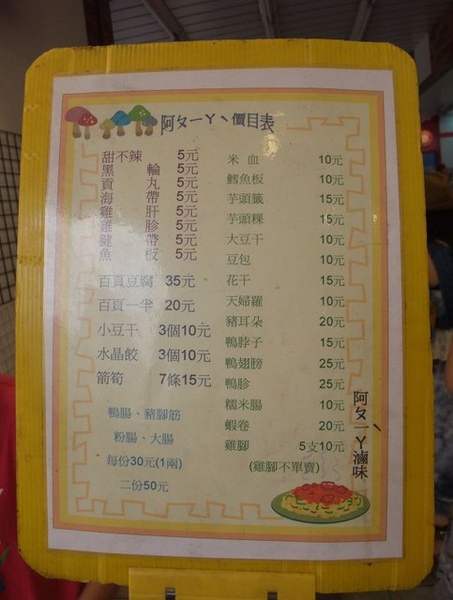 阿ㄆㄧㄚヽ價目表
甜不辣 5元
黑輪 5元
貢丸 5元
海帶 5元
雞肝 5元
雞胗 5元
腱帶 5元
魚板 5元
百頁豆腐 35元
百頁一半 20元
小豆干 3個10元
水晶餃 3個10元
箭筍 7條15元
鴨腸、豬腳筋
粉腸、大腸
每份30元(1兩)
二份50元
米血 10元
鱈魚板 10元
芋頭籤 15元
芋頭粿 15元
大豆干 10元
豆包 10元
花干 15元
天婦羅 10元
豬耳朵 20元
鴨脖子 15元
鴨翅膀 25元
鴨胗 25元
糯米腸 10元
蝦卷 20元
雞腳 5支10元
(雞腳不單賣)
阿ㄆㄧㄚヽ滷味